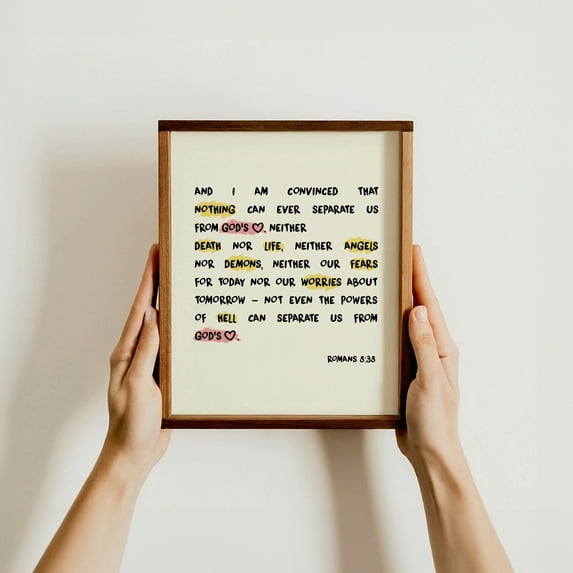 AND I AM CONVINCED THAT
NOTHING CAN EVER SEPARATE US
FROM GOD'S ♡. NEITHER
DEATH NOR LIFE, NEITHER ANGELS
NOR DEMONS, NEITHER OUR FEARS
FOR TODAY NOR OUR WORRIES ABOUT
TOMORROW – NOT EVEN THE POWERS
OF HELL CAN SEPARATE US FROM
GOD'S ♡.
ROMANS 8:38